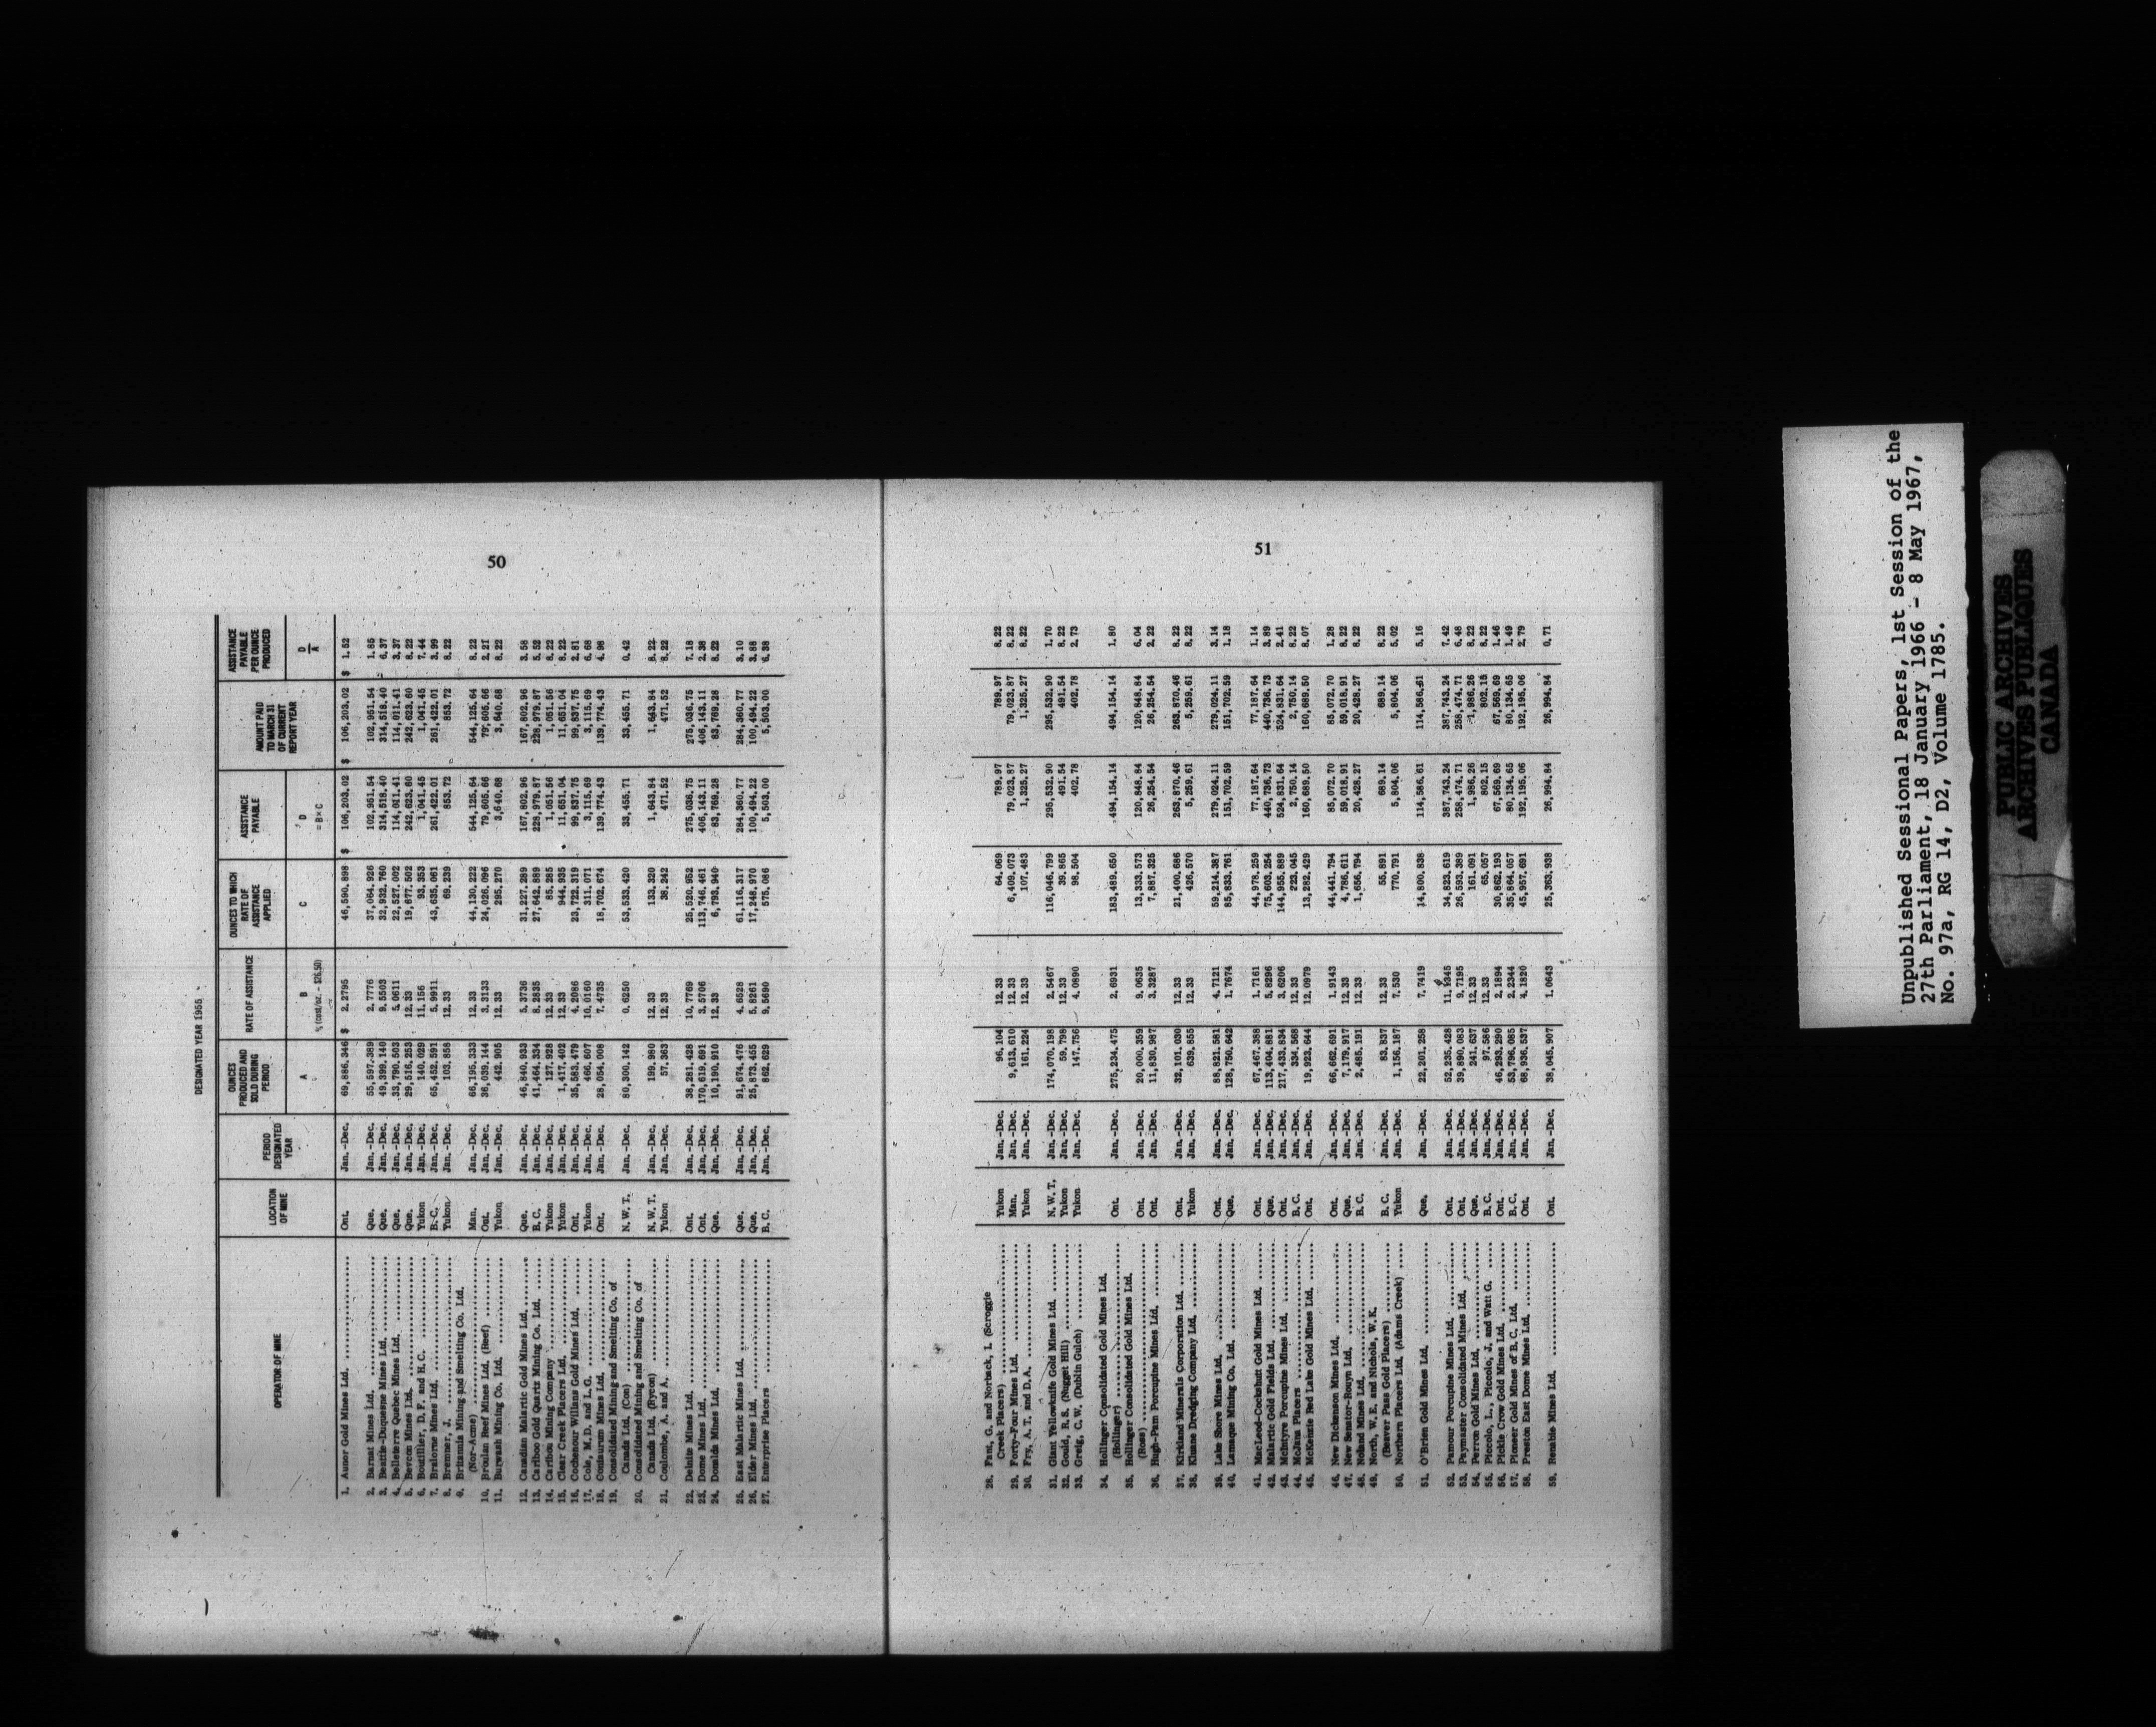 50
DESIGNATED YEAR 1955
OPERATOR OF MINE LOCATION OF MINE PERIOD DESIGNATED YEAR OUNCES PRODUCED AND SOLD DURING PERIOD RATE OF ASSISTANCE OUNCES TO WHICH RATE OF ASSISTANCE APPLIED ASSISTANCE PAYABLE AMOUNT PAID TO MARCH 31 OF CURRENT REPORT YEAR ASSISTANCE PAYABLE PER OUNCE PRODUCED
A B C D D
⅔ (cost/oz. - $26.50) = B × C A
$ $ $ $
1. Aunor Gold Mines Ltd. Ont. Jan. -Dec. 69,886.346 2.2795 46,590.898 106,203.02 106,203.02 1.52
2. Barnat Mines Ltd. Que. Jan. -Dec. 55,597.389 2.7776 37,064.926 102,951.54 102,951.54 1.85
3. Beattie-Duquesne Mines Ltd. Que. Jan. -Dec. 49,399.140 9.5503 32,932.760 314,518.40 314,518.40 6.37
4. Belleterre Quebec Mines Ltd. Que. Jan. -Dec. 33,790.503 5.0611 22,527.002 114,011.41 114,011.41 3.37
5. Bevcon Mines Ltd. Que. Jan. -Dec. 29,516.253 12.33 19,677.502 242,623.60 242,623.60 8.22
6. Boutillier, D. F. and H. C. Yukon Jan. -Dec. 140.029 11.156 93.353 1,041.45 1,041.45 7.44
7. Bralorne Mines Ltd. B. C. Jan. -Dec. 65,452.591 5.9911 43,635.061 261,422.01 261,422.01 3.99
8. Bremner, J. Yukon Jan. -Dec. 103.858 12.33 69.239 853.72 853.72 8.22
9. Britannia Mining and Smelting Co. Ltd.
(Nor-Acme) Man. Jan. -Dec. 66,195.333 12.33 44,130.222 544,125.64 544,125.64 8.22
10. Broulan Reef Mines Ltd. (Reef) Ont. Jan. -Dec. 36,039.144 3.3133 24,026.096 79,605.66 79,605.66 2.21
11. Burwash Mining Co. Ltd. Yukon Jan. -Dec. 442.905 12.33 295.270 3,640.68 3,640.68 8.22
12. Canadian Malartic Gold Mines Ltd. Que. Jan. -Dec. 46,840.933 5.3736 31,227.289 167,802.96 167,802.96 3.58
13. Cariboo Gold Quartz Mining Co. Ltd. B. C. Jan. -Dec. 41,464.334 8.2835 27,642.889 228,979.87 228,979.87 5.52
14. Caribou Mining Company Yukon Jan. -Dec. 127.928 12.33 85.285 1,051.56 1,051.56 8.22
15. Clear Creek Placers Ltd. Yukon Jan. -Dec. 1,417.402 12.33 944.935 11,651.04 11,651.04 8.22
16. Cochenour Willans Gold Mines Ltd. Ont. Jan. -Dec. 35,583.479 4.2086 23,722.319 99,837.75 99,837.75 2.81
17. Cole, M. D. and L. G. Yukon Jan. -Dec. 466.607 10.0160 311.071 3,115.69 3,115.69 6.68
18. Coniaurum Mines Ltd. Ont. Jan. -Dec. 28,054.008 7.4735 18,702.674 139,774.43 139,774.43 4.98
19. Consolidated Mining and Smelting Co. of
Canada Ltd. (Con) N. W. T. Jan. -Dec. 80,300.142 0.6250 53,533.420 33,455.71 33,455.71 0.42
20. Consolidated Mining and Smelting Co. of
Canada Ltd. (Rycon) N. W. T. Jan. -Dec. 199.980 12.33 133.320 1,643.84 1,643.84 8.22
21. Coulombe, A. and A. Yukon Jan. -Dec. 57.363 12.33 38.242 471.52 471.52 8.22
22. Delnite Mines Ltd. Ont. Jan. -Dec. 38,281.428 10.7769 25,520.952 275,036.75 275,036.75 7.18
23. Dome Mines Ltd. Ont. Jan. -Dec. 170,619.691 3.5706 113,746.461 406,143.11 406,143.11 2.38
24. Donalda Mines Ltd. Que. Jan. -Dec. 10,190.910 12.33 6,793.940 83,769.28 83,769.28 8.22
25. East Malartic Mines Ltd. Que. Jan. -Dec. 91,674.476 4.6528 61,116.317 284,360.77 284,360.77 3.10
26. Elder Mines Ltd. Que. Jan. -Dec. 25,873.455 5.8261 17,248.970 100,494.22 100,494.22 3.88
27. Enterprise Placers B. C. Jan. -Dec. 862.629 9.5690 575.086 5,503.00 5,503.00 6.38
51
28. Fant, G. and Norback, I. (Scroggie
Creek Placers) Yukon Jan. -Dec. 96.104 12.33 64.069 789.97 789.97 8.22
29. Forty-Four Mines Ltd. Man. Jan. -Dec. 9,613.610 12.33 6,409.073 79,023.87 79,023.87 8.22
30. Fry, A. T. and D. A. Yukon Jan. -Dec. 161.224 12.33 107.483 1,325.27 1,325.27 8.22
31. Giant Yellowknife Gold Mines Ltd. N. W. T. Jan. -Dec. 174,070.198 2.5467 116,046.799 295,532.90 295,532.90 1.70
32. Gould, R. S. (Nugget Hill) Yukon Jan. -Dec. 59.798 12.33 39.865 491.54 491.54 8.22
33. Greig, C. W. (Dublin Gulch) Yukon Jan. -Dec. 147.756 4.0890 98.504 402.78 402.78 2.73
34. Hollinger Consolidated Gold Mines Ltd.
(Hollinger) Ont. Jan. -Dec. 275,234.475 2.6931 183,489.650 494,154.14 494,154.14 1.80
35. Hollinger Consolidated Gold Mines Ltd.
(Ross) Ont. Jan. -Dec. 20,000.359 9.0635 13,333.573 120,848.84 120,848.84 6.04
36. Hugh-Pam Porcupine Mines Ltd. Ont. Jan. -Dec. 11,830.987 3.3287 7,887.325 26,254.54 26,254.54 2.22
37. Kirkland Minerals Corporation Ltd. Ont. Jan. -Dec. 32,101.030 12.33 21,400.686 263,870.46 263,870.46 8.22
38. Kluane Dredging Company Ltd. Yukon Jan. -Dec. 639.855 12.33 426.570 5,259.61 5,259.61 8.22
39. Lake Shore Mines Ltd. Ont. Jan. -Dec. 88,821.581 4.7121 59,214.387 279,024.11 279,024.11 3.14
40. Lamaque Mining Co. Ltd. Que. Jan. -Dec. 128,750.642 1.7674 85,833.761 151,702.59 151,702.59 1.18
41. MacLeod-Cockshutt Gold Mines Ltd. Ont. Jan. -Dec. 67,467.388 1.7161 44,978.259 77,187.64 77,187.64 1.14
42. Malartic Gold Fields Ltd. Que. Jan. -Dec. 113,404.881 5.8296 75,603.254 440,736.73 440,736.73 3.89
43. McIntyre Porcupine Mines Ltd. Ont. Jan. -Dec. 217,433.834 3.6206 144,955.889 524,831.64 524,831.64 2.41
44. McJans Placers B. C. Jan. -Dec. 334.568 12.33 223.045 2,750.14 2,750.14 8.22
45. McKenzie Red Lake Gold Mines Ltd. Ont. Jan. -Dec. 19,923.644 12.0979 13,282.429 160,689.50 160,689.50 8.07
46. New Dickenson Mines Ltd. Ont. Jan. -Dec. 66,662.691 1.9143 44,441.794 85,072.70 85,072.70 1.28
47. New Senator-Rouyn Ltd. Que. Jan. -Dec. 7,179.917 12.33 4,786.611 59,018.91 59,018.91 8.22
48. Noland Mines Ltd. B. C. Jan. -Dec. 2,485.191 12.33 1,656.794 20,428.27 20,428.27 8.22
49. North, W. E. and Nichols, W. K.
(Beaver Pass Gold Placers) B. C. Jan. -Dec. 83.837 12.33 55.891 689.14 689.14 8.22
50. Northern Placers Ltd. (Adams Creek) Yukon Jan. -Dec. 1,156.187 7.530 770.791 5,804.06 5,804.06 5.02
51. O'Brien Gold Mines Ltd. Que. Jan. -Dec. 22,201.258 7.7419 14,800.838 114,586.61 114,586.61 5.16
52. Pamour Porcupine Mines Ltd. Ont. Jan. -Dec. 52,235.428 11.1345 34,823.619 387,743.24 387,743.24 7.42
53. Paymaster Consolidated Mines Ltd. Ont. Jan. -Dec. 39,890.083 9.7195 26,593.389 258,474.71 258,474.71 6.48
54. Perron Gold Mines Ltd. Que. Jan. -Dec. 241.637 12.33 161.091 1,986.26 1,986.26 8.22
55. Piccolo, L., Piccolo, J. and Watt G. B. C. Jan. -Dec. 97.586 12.33 65.057 802.15 802.15 8.22
56. Pickle Crow Gold Mines Ltd. Ont. Jan. -Dec. 46,293.290 2.1894 30,862.193 67,569.69 67,569.69 1.46
57. Pioneer Gold Mines of B. C. Ltd. B. C. Jan. -Dec. 53,796.085 2.2344 35,864.057 80,134.65 80,134.65 1.49
58. Preston East Dome Mines Ltd. Ont. Jan. -Dec. 68,936.537 4.1820 45,957.691 192,195.06 192,195.06 2.79
59. Renabie Mines Ltd. Ont. Jan. -Dec. 38,045.907 1.0643 25,363.938 26,994.84 26,994.84 0.71
Unpublished Sessional Papers, 1st Session of the
27th Parliament, 18 January 1966 - 8 May 1967,
No. 97a, RG 14, D2, Volume 1785.
PUBLIC ARCHIVES
ARCHIVES PUBLIQUES
CANADA